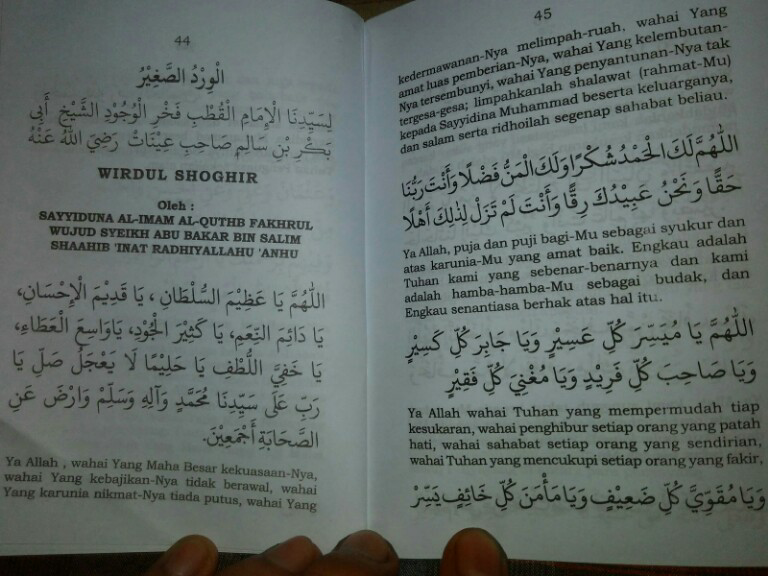 44
الْوِرْدُ الصَّغِيْرُ
لِسَيِّدِنَا الْإِمَامِ الْقُطْبِ فَخْرِ الْوُجُوْدِ الشَّيْخِ أَبِى
بَكْرِ بْنِ سَالِمٍ صَاحِبِ عِيْنَاتْ رَضِيَ اللّٰهُ عَنْهُ
WIRDUL SHOGHIR
Oleh :
SAYYIDUNA AL-IMAM AL-QUTHB FAKHRUL
WUJUD SYEIKH ABU BAKAR BIN SALIM
SHAAHIB 'INAT RADHIYALLAHU 'ANHU
اَللّٰهُمَّ يَا عَظِيْمَ السُّلْطَانِ ، يَا قَدِيْمَ الْإِحْسَانِ،
يَا دَائِمَ النِّعَمِ، يَا كَثِيْرَ الْجُوْدِ، يَاوَاسِعَ الْعَطَاءِ،
يَا خَفِيَّ اللُّطْفِ يَا حَلِيْمًا لَا يَعْجَلُ صَلِّ يَا
رَبِّ عَلَى سَيِّدِنَا مُحَمَّدٍ وَآلِهِ وَسَلِّمْ وَارْضَ عَنِ
الصَّحَابَةِ أَجْمَعِيْنَ.
Ya Allah , wahai Yang Maha Besar kekuasaan-Nya,
wahai Yang kebajikan-Nya tidak berawal, wahai
Yang karunia nikmat-Nya tiada putus, wahai Yang
45
kedermawanan-Nya melimpah-ruah, wahai Yang
amat luas pemberian-Nya, wahai Yang kelembutan-
Nya tersembunyi, wahai Yang penyantunan-Nya tak
tergesa-gesa; limpahkanlah shalawat (rahmat-Mu)
kepada Sayyidina Muhammad beserta keluarganya,
dan salam serta ridhoilah segenap sahabat beliau.
اَللّٰهُمَّ لَكَ الْحَمْدُ شُكْرًا وَلَكَ الْمَنُّ فَضْلًا وَأَنْتَ رَبُّنَا
حَقًّا وَنَحْنُ عَبِيْدُكَ رِقًّا وَأَنْتَ لَمْ تَزَلْ لِذٰلِكَ أَهْلًا
Ya Allah, puja dan puji bagi-Mu sebagai syukur dan
atas karunia-Mu yang amat baik. Engkau adalah
Tuhan kami yang sebenar-benarnya dan kami
adalah hamba-hamba-Mu sebagai budak, dan
Engkau senantiasa berhak atas hal itu.
اَللّٰهُمَّ يَا مُيَسِّرَ كُلِّ عَسِيْرٍ وَيَا جَابِرَ كُلِّ كَسِيْرٍ
وَيَا صَاحِبَ كُلِّ فَرِيْدٍ وَيَا مُغْنِيَ كُلِّ فَقِيْرٍ
Ya Allah wahai Tuhan yang mempermudah tiap
kesukaran, wahai penghibur setiap orang yang patah
hati, wahai sahabat setiap orang yang sendirian,
wahai Tuhan yang mencukupi setiap orang yang fakir,
وَيَا مُقَوِّيَ كُلِّ ضَعِيْفٍ وَيَا مَأْمَنَ كُلِّ خَائِفٍ يَسِّرْ